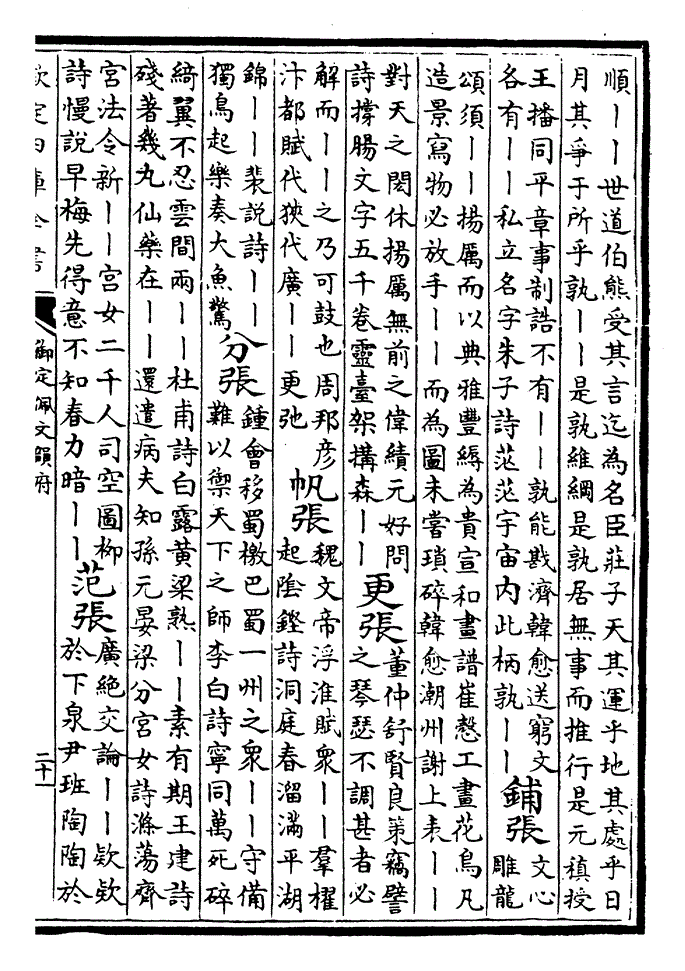 順｜｜世道伯熊受其言迄為名臣莊子天其運乎地其處乎日
月其爭于所乎孰｜｜是孰維綱是孰居無事而推行是元稹授
王播同平章事制誥不有｜｜孰能戡濟韓愈送窮文
各有｜｜私立名字朱子詩茫茫宇宙内此柄孰｜｜
鋪張
文心
雕龍
頌須｜｜揚厲而以典雅豐縟為貴宣和畫譜崔慤工畫花鳥凡
造景寫物必放手｜｜而為圖未嘗瑣碎韓愈潮州謝上表｜｜
對天之閎休揚厲無前之偉績元好問
詩撐腸文字五千卷靈臺架構森｜｜
更張
董仲舒賢良策竊譬
之琴瑟不調甚者必
解而｜｜之乃可鼓也周邦彦
汴都賦代狹代廣｜｜更弛
帆張
魏文帝浮淮賦衆｜｜羣櫂
起陰鏗詩洞庭春溜滿平湖
錦｜｜裴説詩｜｜
獨鳥起樂奏大魚驚
分張
鍾會移蜀檄巴蜀一州之衆｜｜守備
難以禦天下之師李白詩寧同萬死碎
綺翼不忍雲間兩｜｜杜甫詩白露黄粱熟｜｜素有期王建詩
殘著幾丸仙藥在｜｜還遣病夫知孫元晏梁分宮女詩滌蕩齊
宮法令新｜｜宮女二千人司空圖栁
詩慢說早梅先得意不知春力暗｜｜
范張
廣絶交論｜｜欵欵
於下泉尹班陶陶於
欽定四庫全書
御定佩文韻府
二十